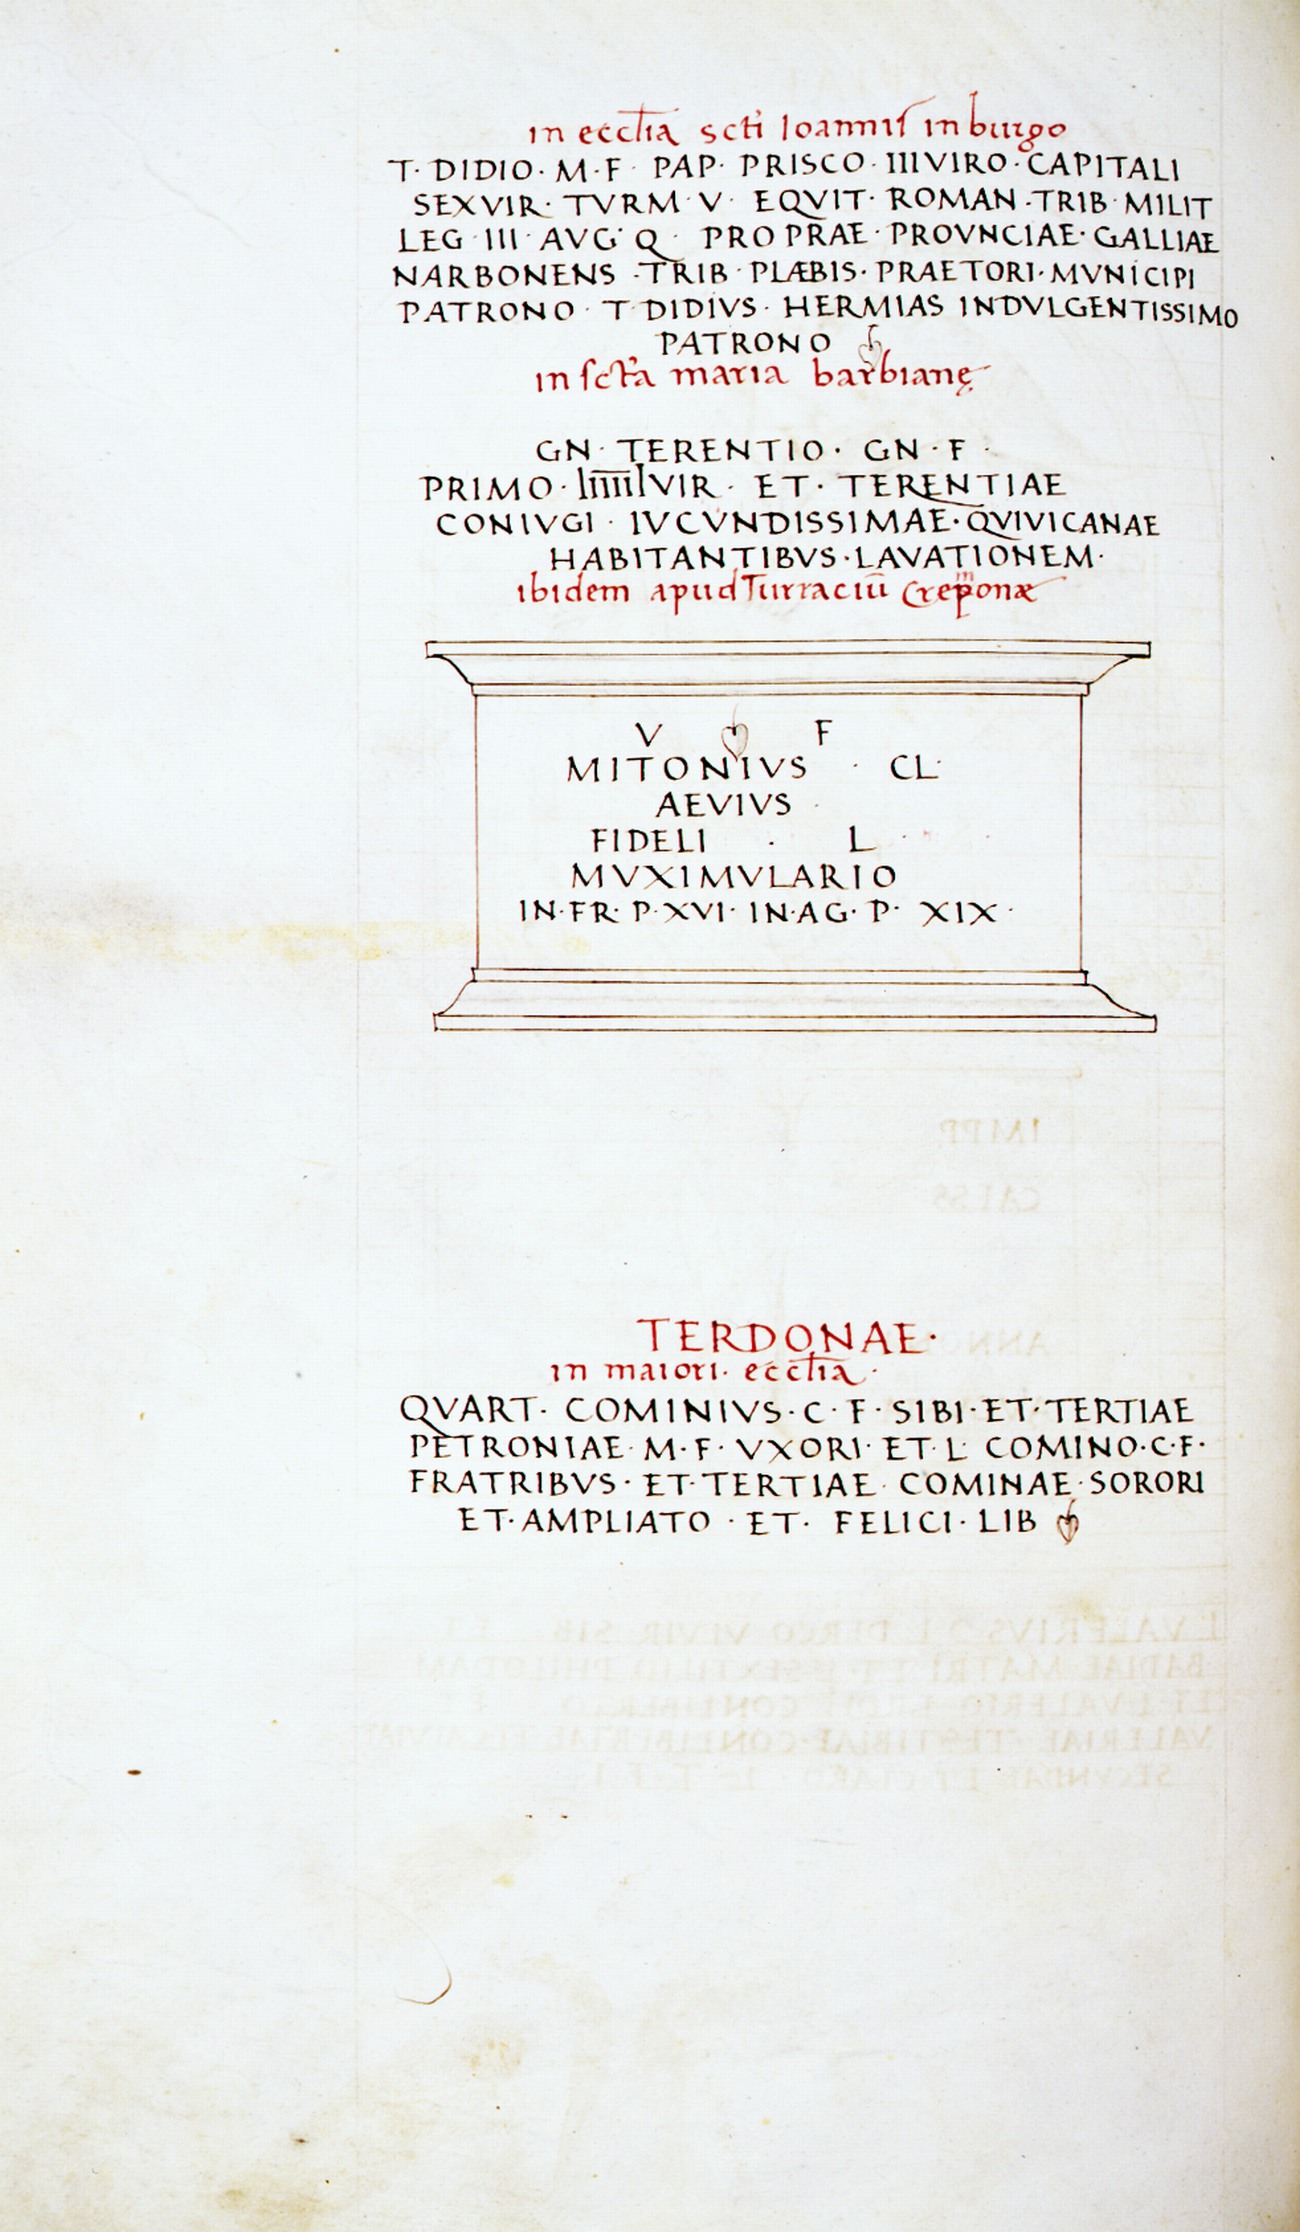 in eccl̅ia scti Ioannis in burgo
T· DIDIO· M·F· PAP· PRISCO· IIIVIRO· CAPITALI
SEXVIR· TVRM·V· EQVIT· ROMAN·TRIB·MILIT
LEG·III·AVG·Q· PRO PRAE·PROVNCIAE·GALLIAE
NARBONENS·TRIB·PLÆBIS·PRAETORI·MVNICIPI
PATRONO· T·DIDIVS· HERMIAS INDVLGENTISSIMO
PATRONO
in scta maria barbianę
GN· TERENTIO· GN·F·
PRIMO· IIIIIIVIR· ET· TERENTIAE
CONIVGI· IVCVNDISSIMAE·QVIVICANAE
HABITANTIBVS·LAVATIONEM·
ibidem apud Turraciū
V F
MITONIVS · CL·
AEVIVS ·
FIDELI · L ·
MVXIMVLARIO
IN·FR· P·XVI· IN·AG· P· XIX·
TERDONAE·
in maiori· eccl̅ia·
QVART· COMINIVS·C·F·SIBI·ET·TERTIAE
PETRONIAE·M·F·VXORI·ET·L·COMINO·C·F·
FRATRIBVS·ET·TERTIAE·COMINAE·SORORI
ET·AMPLIATO·ET· FELICI·LIB